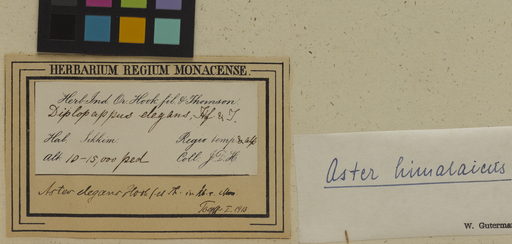 HERBARIUM REGIUM MONACENSE.
Herb. Ind. Or. Hook. fil. & Thomson.
Diplopappus elegans, Hf. & T.
Hab. Sikkim Regio temp. & alp.
alt. 10-15,000 ped Coll. J. D. H.
Aster elegans Hook f et Th. in
I. 1910
Aster himalaicus
W. Guterman